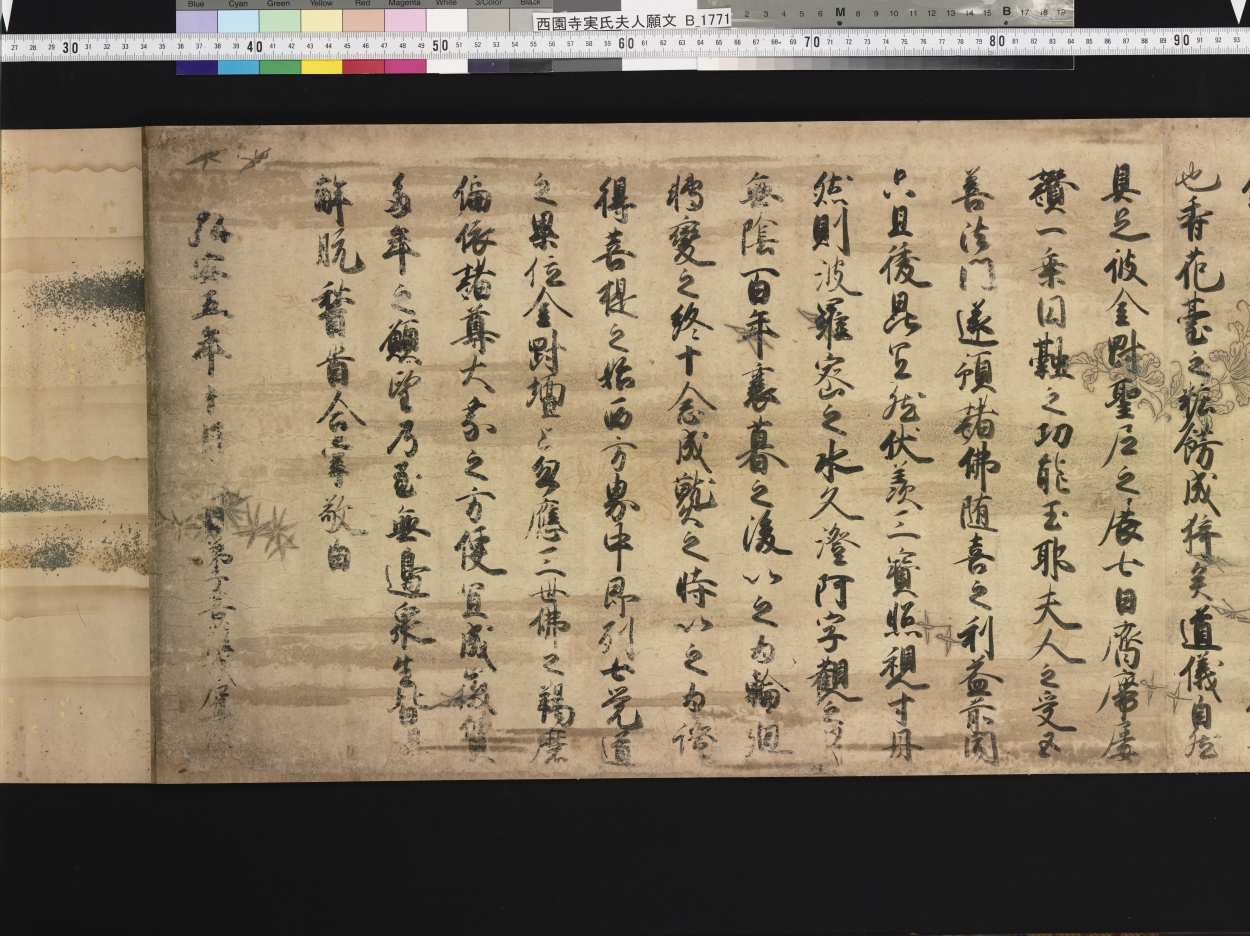 西園寺実氏夫人願文 B_1771
Blue Cyan Green Yellow Red Magenta White 3/Color Black
也香花臺之粧餝成粹矣道儀自然
具足彼金剛聖尼之展七日齋席屡
讃一乗因軄之功能玉耶夫人之受五
善法門遂預諸佛随喜之利益前聞
只且後昆豈然伏羨三寳照視寸丹
然則波羅密之水久澄阿字觀之
無陰百年衰暮之後以之为輪廻
轉變之終十念成就之時以之为證
得菩提之始西方界中即列七覚道
之果位金剛壇上忽應三世佛之羯磨
偏依諸尊大家之方便宜成
多年之願望乃至無邊衆生皆
解脱稽首合掌敬白
弘安五年 月 日弟子